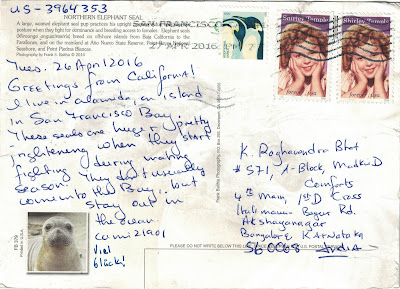 US-3964353
NORTHERN ELEPHANT SEAL
A large, weaned elephant seal pup practices his upright
posture when they fight for dominance and breeding access to females. Elephant seals
(Mirounga angustirostris) breed on offshore islands from Baja California to the
Farallones, and on the mainland at Año Nuevo State Reserve, Point Reyes National
Seashore, and Point Piedras Blancas.
Photography by Frank S. Balthis © 2010
SAN FRANCISCO
27 APR 2016
Shirley Temple
forever USA
Shirley Temple
forever USA
Tues. 26 Apr 2016
Greetings from California!
I live in Alameda, an island
in San Francisco Bay.
These seals are huge & pretty
frightening when they start
fighting during mating
season. They don't usually
come into the Bay, but
stay out in
the ocean.
cami21901
viel
glück!
K. Raghavendra Bhat
# 571, A-Block,
Comforts
4th Main, 1st D Cross
Bogar Rd.
Akshayanagar
Bangalore KARNATAKA
560068 India
PLEASE DO NOT WRITE BELOW THIS LINE
U.S. POSTAL
Printed in U.S.A.